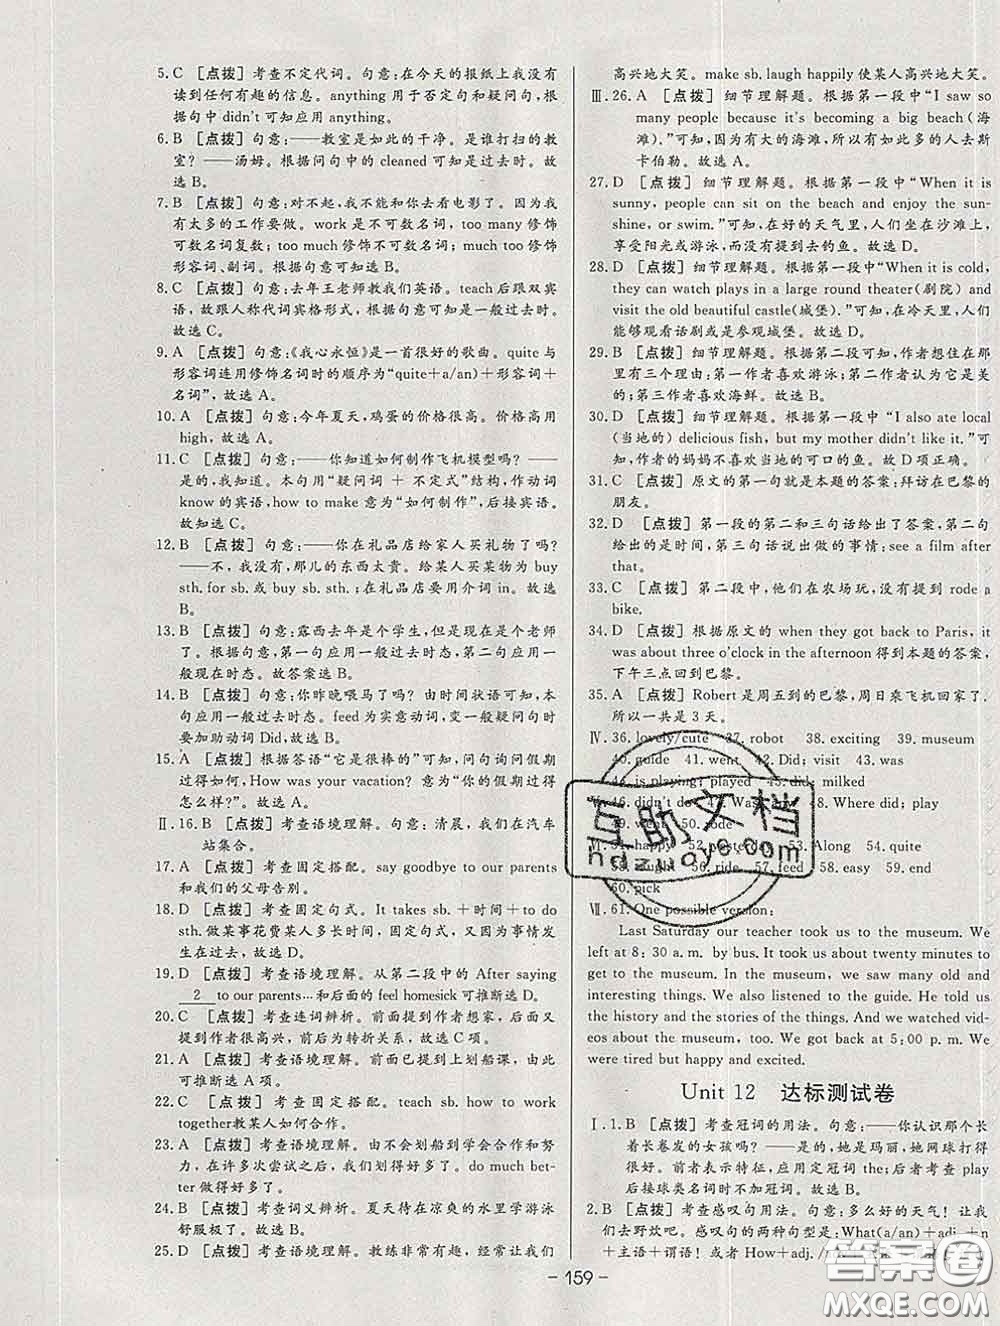 5. C [点拨] 考查不定代词。句意:在今天的报纸上我没有
读到任何有趣的信息。anything 用于否定句和疑问句,根
据句中 didn't 可知应用 anything。
6. B [点拨] 句意:——教室是如此的干净。是谁打扫的教
室?——汤姆。根据问句中的 cleaned 可知是过去时。故
选 B。
7. B [点拨] 句意:对不起,我不能和你去看电影了。因为我
有太多的工作要做。work 是不可数名词,too many 修饰
可数名词复数; too much 修饰不可数名词; much too 修饰
形容词、副词。根据句意可知选 B。
8. C [点拨] 句意:去年王老师教我们英语。teach 后跟双宾
语,故跟人称代词宾格形式,根据句意可知是一般过去时。
故选 C。
9. A [点拨] 句意:《我心永恒》是一首很好的歌曲。quite 与
形容词连用修饰名词时的顺序为“quite+a/an)+形容词+
名词”,故选 A。
10. A [点拨] 句意:今年夏天,鸡蛋的价格很高。价格高用
high,故选 A。
11. C [点拨] 句意:——你知道如何制作飞机模型吗?——
是的,我知道。本句用“疑问词 + 不定式”结构,作动词
know 的宾语,how to make 意为“如何制作”,后接宾语。
故应选 C。
12. B [点拨] 句意:——你在礼品店给家人买礼物了吗?
——不,我没有,那儿的东西太贵。给某人买某物为 buy
sth. for sb. 或 buy sb. sth. ;在礼品店要用介词 in。故选
B。
13. B [点拨] 句意:露西去年是个学生,但是现在是个老师
了。根据句意,第一句应用一般过去时态,第二句应用一
般现在时态。故答案选 B。
14. B [点拨] 句意:你昨晚喂马了吗? 由时间状语可知,本
句应用一般过去时态。feed 为实意动词,变一般疑问句时
要加助动词 Did,故选 B。
15. A [点拨] 根据答语“它是很棒的”可知,问句询问假期
过得如何,How was your vacation? 意为“你的假期过得
怎么样?”。故选 A。
Ⅱ. 16. B [点拨] 考查语境理解。句意:清晨,我们在汽车
站集合。
17. A [点拨] 考查固定搭配。say goodbye to our parents
和我们的父母告别。
18. D [点拨] 考查固定句式。It takes sb. +时间+to do
sth. 做某事花费某人多长时间,固定句式,又因为事情发
生在过去,故选 D。
19. D [点拨] 考查语境理解。从第二段中的 After saying
2 to our parents…和后面的 feel homesick 可推断选 D。
20. C [点拨] 考查连词辨析。前面提到作者想家,后面又
提到作者很高兴,前后为转折关系,故选 C 项。
21. A [点拨] 考查语境理解。前面已提到上划船课,由此
可推断选 A 项。
22. C [点拨] 考查固定搭配。teach sb. how to work
together 教某人如何合作。
23. A [点拨] 考查语境理解。由前文学会划船到学会合作和努
力,在许多次尝试之后,我们划得好多了。do much bet-
ter 做得好多了。
24. C [点拨] 考查词义辨析。夏天待在凉爽的水里学游泳
舒服极了。故选 C。
25. D [点拨] 考查语境理解。教练非常有趣,经常让我们
高兴地大笑。make sb. laugh happily 使某人高兴地大笑。
Ⅲ. 26. A [点拨] 细节理解题。根据第一段中“I saw so
many people because it's becoming a big beach (海
滩)."可知,因为有大的海滩,所以有如此多的人去斯
卡伯勒。故选 A。
27. D [点拨] 细节理解题。根据第一段中“When it is
sunny, people can sit on the beach and enjoy the sun-
shine, or swim.”可知,在好的天气里,人们坐在沙滩上,
享受阳光或游泳,而没有提到去钓鱼。故选 D。
28. D [点拨] 细节理解题。根据第一段中“When it is cold,
they can watch plays in a large round theater(剧院) and
visit the old beautiful castle(城堡)."可知,在冷天里,人们
能够观看话剧或是参观城堡。故选 D。
29. B [点拨] 细节理解题。根据第二段可知,作者想住在那
里有三个理由:第一作者喜欢游泳;第二作者认为它是美
的;第三作者喜欢海鲜。故选 B。
30. D [点拨] 细节理解题。根据第二段中“I also ate local
(当地的) delicious fish, but my mother didn't like it.”可
知,作者的妈妈不喜欢当地的可口的鱼。故 D 项正确。
31. C [点拨] 原文的第一句就是本题的答案:拜访在巴黎的
朋友。
32. D [点拨] 第一段的第二和三句话给出了答案,第二句
给出的是时间,第三句话说出做的事情: see a film after
that。
33. C [点拨] 第二段中,他们在农场玩,没有提到 rode a
bike.
34. D [点拨] 根据原文的 when they got back to Paris, it
was about three o'clock in the afternoon 得到本题的答案,
下午三点回到巴黎。
35. A [点拨] Robert 是周五到的巴黎,周日乘飞机回家了,
所以一共是 3 天。
Ⅳ. 36. lovely/cute 37. robot 38. exciting 39. museum
40. guide 41. went 42. Did; visit 43. was
44. is playing; played 45. did; milked
Ⅴ. 46. didn't do 47. Was any 48. Where did; play
49. went 50. rode
Ⅵ. 51. happy 52. 53. Along 54. quite
55. taught 56. ride 57. feed 58. easy 59. end
60. pick
Ⅶ. 61. One possible version:
Last Saturday our teacher took us to the museum. We
left at 8: 30 a. m. by bus. It took us about twenty minutes to
get to the museum. In the museum, we saw many old and
interesting things. We also listened to the guide. He told us
the history and the stories of the things. And we watched vid-
eos about the museum, too. We got back at 5:00 p. m. We
were tired but happy and excited.
Unit 12 达标测试卷
Ⅰ. 1. B [点拨] 考查冠词的用法。句意:——你认识那个长
着长卷发的女孩吗?——是的,她是玛丽,她网球打得
很好。前者表示特征,应用定冠词 the;后者考查 play
后接球类名词时不加冠词。故选 B。
2. B [点拨] 考查感叹句用法。句意:多么好的天气! 让我
们去野炊吧。感叹句的两种句型是:What(a/an)+adj. +n
+主语+谓语! 或者 How+adj. /
- 159 -
互助文档
hdzuoye.com
答案圈
MXQE.COM